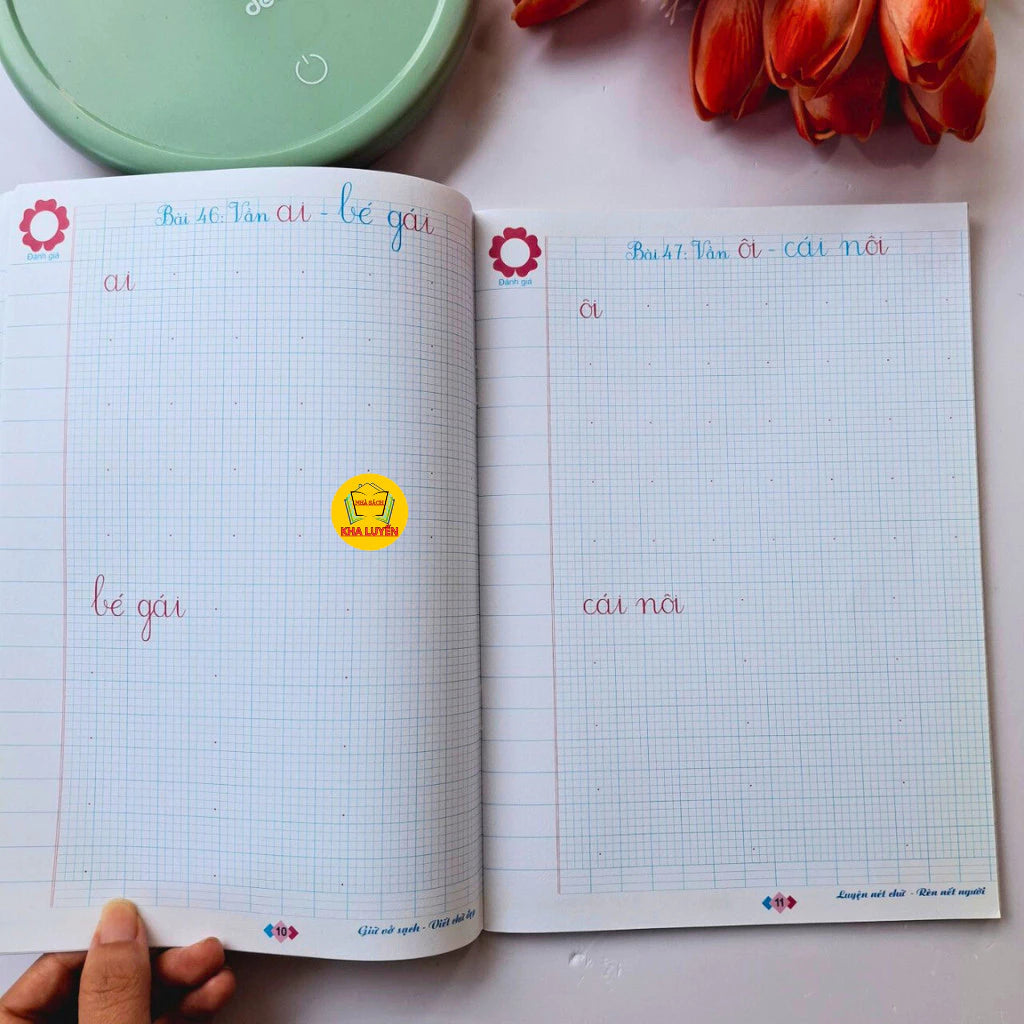 Bài 46: Vần ai - bé gái
Đánh giá
ai
bé gái
10
Giữ vở sạch - Viết chữ đẹp
Bài 47: Vần ôi - cái nôi
Đánh giá
ôi
cái nôi
11
Luyện nét chữ - Rèn nết người
NHÀ SÁCH
KHA LUYẾN